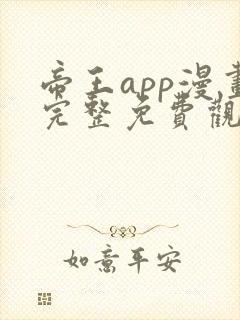 帝王app漫畫
完整免費觀
如意平安